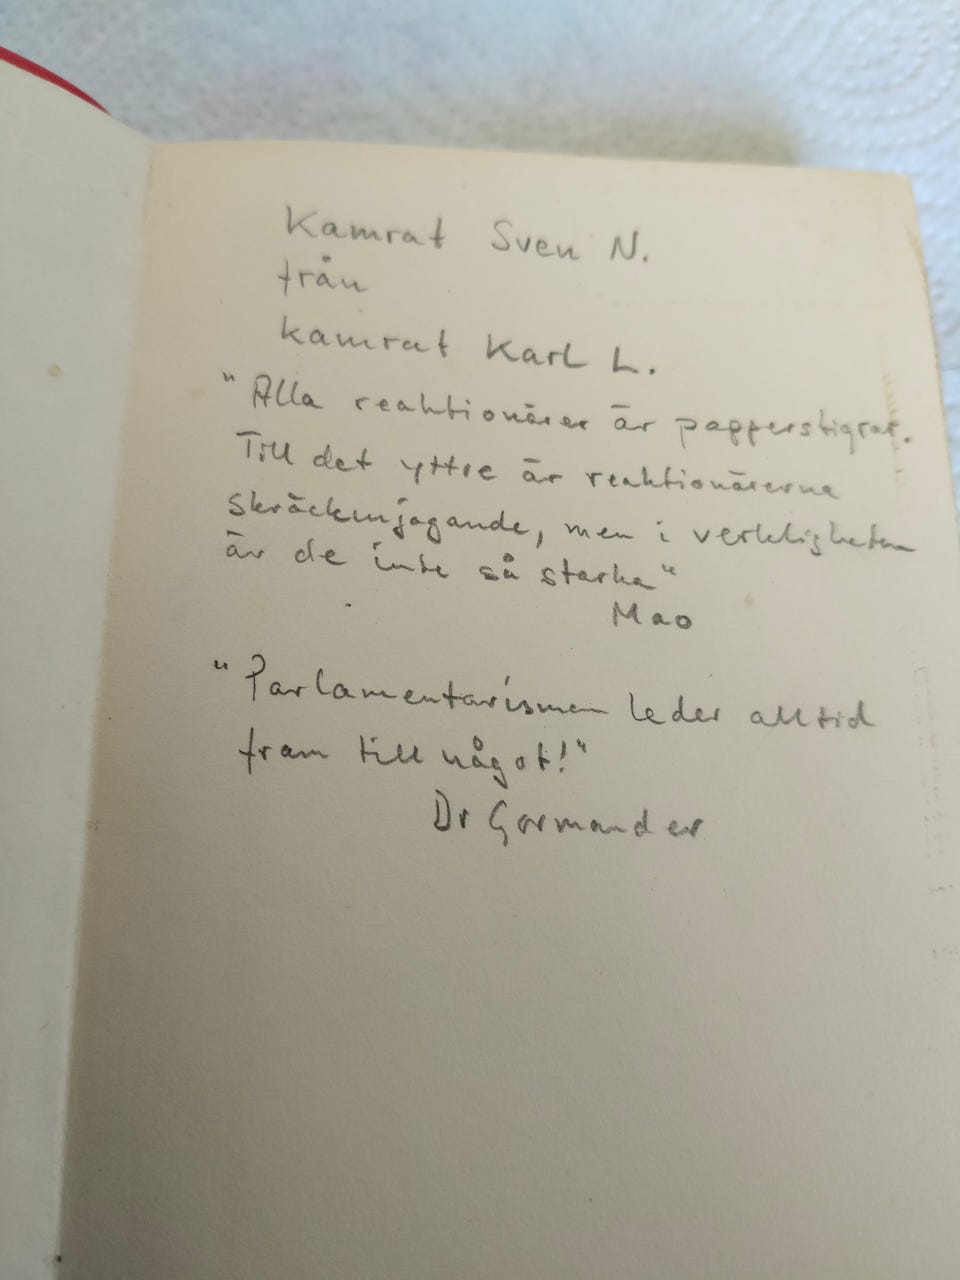 Kamrat Sven N.
från
kamrat Karl L.
"Alla reaktionärer är papperstigrar.
Till det yttre är reaktionärerna
skräckinjagande, men i verkligheten
är de inte så starka"
Mao
"Parlamentarismen leder alltid
fram till något!"
Dr Gormander